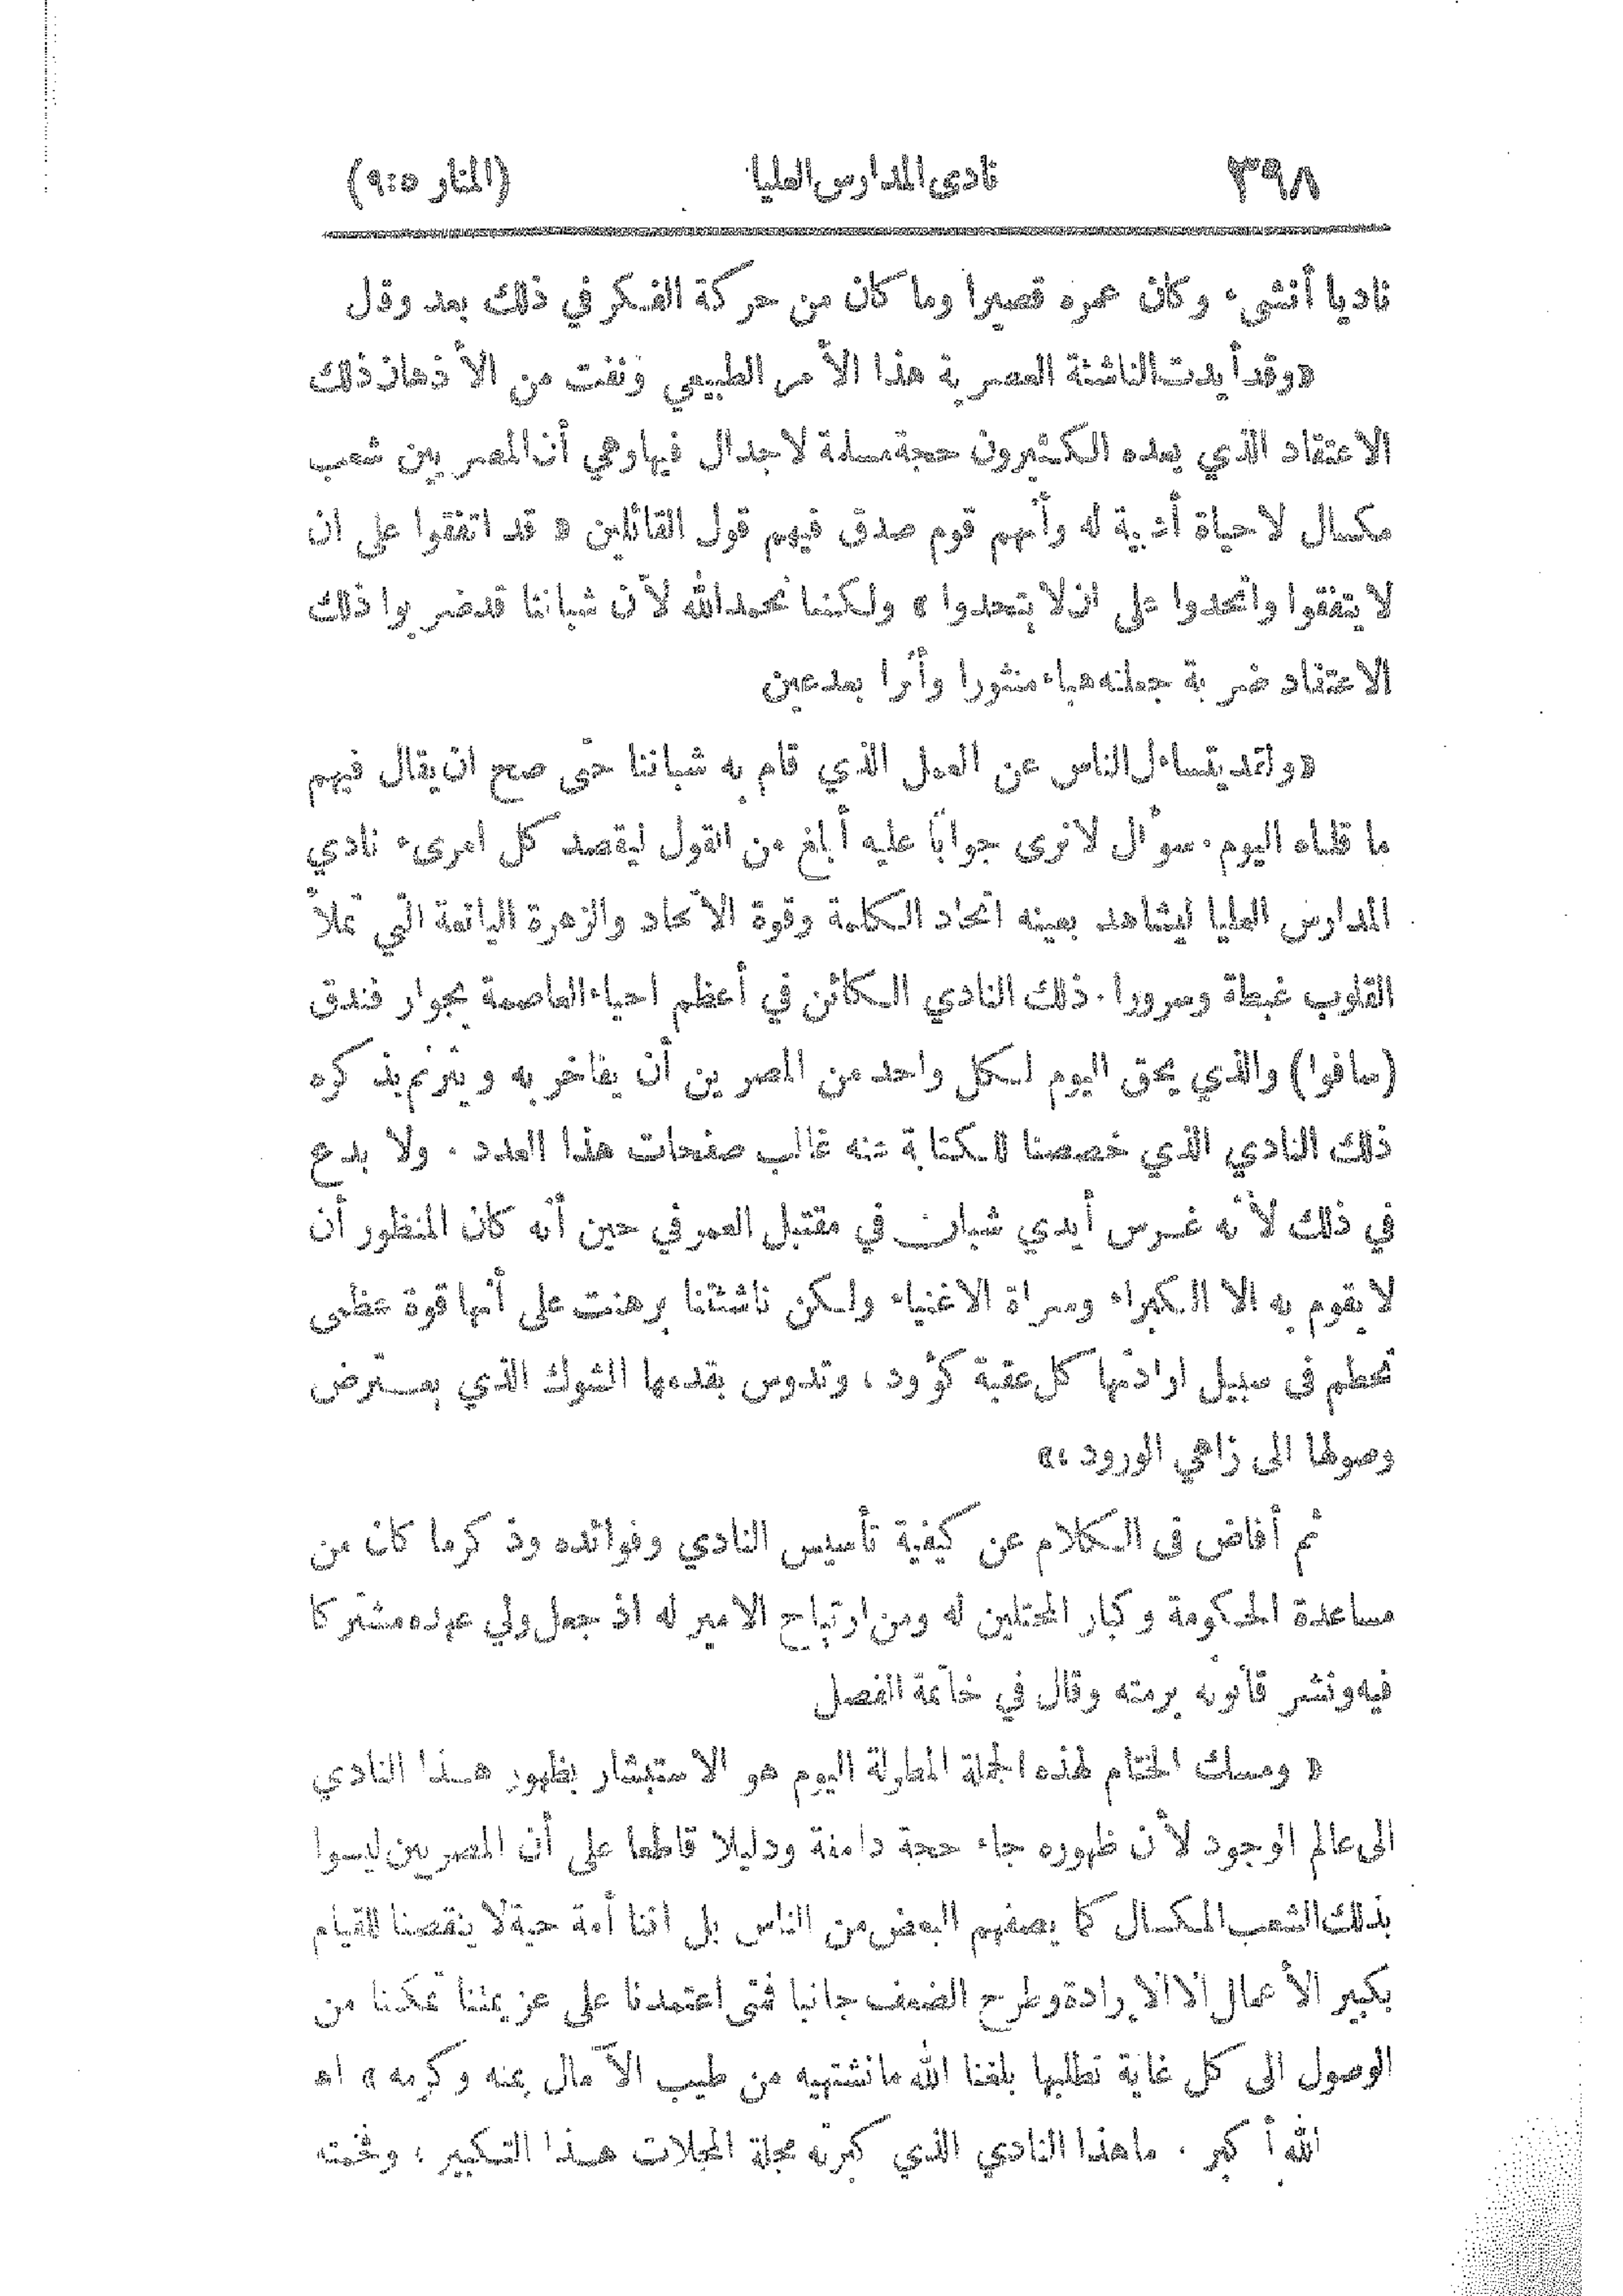 ٣٩٨ نادى المدارس العليا (المنار ٩:٥)
ناديا أنشىء وكان عمره قصيرا وما كان من حركة الفكر في ذلك بعد وقال
«وقد أيدت الناشئة العصرية هذا الأمر الطبيعي ونفت من الأذهان ذلك
الاعتقاد الذي يعده الكثيرون حجة مسلمة لاجدال فيها وهي أن المصريين شعب
مكسال لاحياة أدبية له وأنهم قوم صدق فيهم قول القائلين « قد اتفقوا على ان
لا يتفقوا واتحدوا على ان لا يتحدوا » ولكننا نحمد الله لأن شباننا قد ضربوا ذلك
الاعتقاد ضربة جعلته هباء منثورا وأثرا بعد عين
«ولقد يتساءل الناس عن العمل الذي قام به شباننا حتى صح ان يقال فيهم
ما قلناه اليوم. سؤال لا نرى جوابًا عليه أبلغ من القول ليقصد كل امرىء نادي
المدارس العليا ليشاهد بعينه اتحاد الكلمة وقوة الآتحاد والزهرة اليانعة التي تملأ
القلوب غبطة وسرورا. ذلك النادي الكائن في أعظم احياء العاصمة بجوار فندق
(سافوا) والذي يحق اليوم لكل واحد من المصريين أن يفاخر به ويترنم بذكره
ذلك النادي الذي خصصنا للكتابة عنه غالب صفحات هذا العدد . ولا بدع
في ذلك لأنه غرس أيدي شبان في مقتبل العمر في حين أنه كان المنظور أن
لا يقوم به الا الكبراء وسراة الاغنياء ولكن ناشئتنا برهنت على أنها قوة عظمى
تحطم فى سبيل ارادتها كل عقبة كؤود ، وتدوس بقدمها الشوك الذي يعترض
وصولها الى زاهي الورود ،»
ثم أفاض فى الكلام عن كيفية تأسيس النادي وفوائده وذكر ما كان من
مساعدة الحكومة وكبار المحتلين له ومن ارتياح الامير له اذ جعل ولي عهده مشتركا
فيه ونشر قانونه برمته وقال في خاتمة الفصل
« ومسك الختام لهذه الجملة المطولة اليوم هو الاستبشار بظهور هذا النادي
الى عالم الوجود لأن ظهوره جاء حجة دامغة ودليلا قاطعا على أن المصريين ليسوا
بذلك الشعب المكسال كما يصفهم البعض من الناس بل اننا أمة حية لا ينقصنا للقيام
بكبير الأعمال الا الإرادة وطرح الضعف جانبا فمتى اعتمدنا على عزيمتنا تمكنا من
الوصول الى كل غاية نطلبها بلغنا الله ما نشتهيه من طيب الآمال بمنه وكرمه » اه
الله أكبر . ما هذا النادي الذي كبرته مجلة المجلات هذا التكبير ، وفخمته